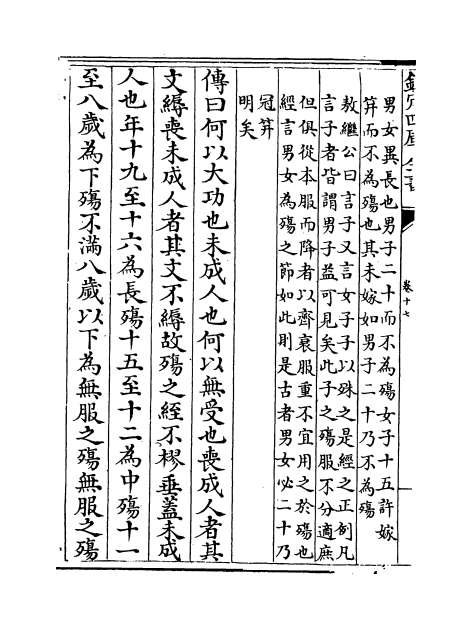 欽定四庫全書
卷十七
男女異長也男子二十而不為殤女子十五許嫁
笄而不為殤也其未嫁如男子二十乃不為殤
敖繼公曰言子又言女子子以殊之是經之正例凡
言子者皆謂男子益可見矣此子之殤服不分適庶
但俱從本服而降者以齊衰服重不宜用之於殤也
經言男女為殤之節如此則是古者男女必二十乃
冠笄
明矣
傳曰何以大功也未成人也何以無受也喪成人者其
文縟喪未成人者其文不縟故殤之絰不樛垂蓋未成
人也年十九至十六為長殤十五至十二為中殤十一
至八歲為下殤不滿八歲以下為無服之殤無服之殤